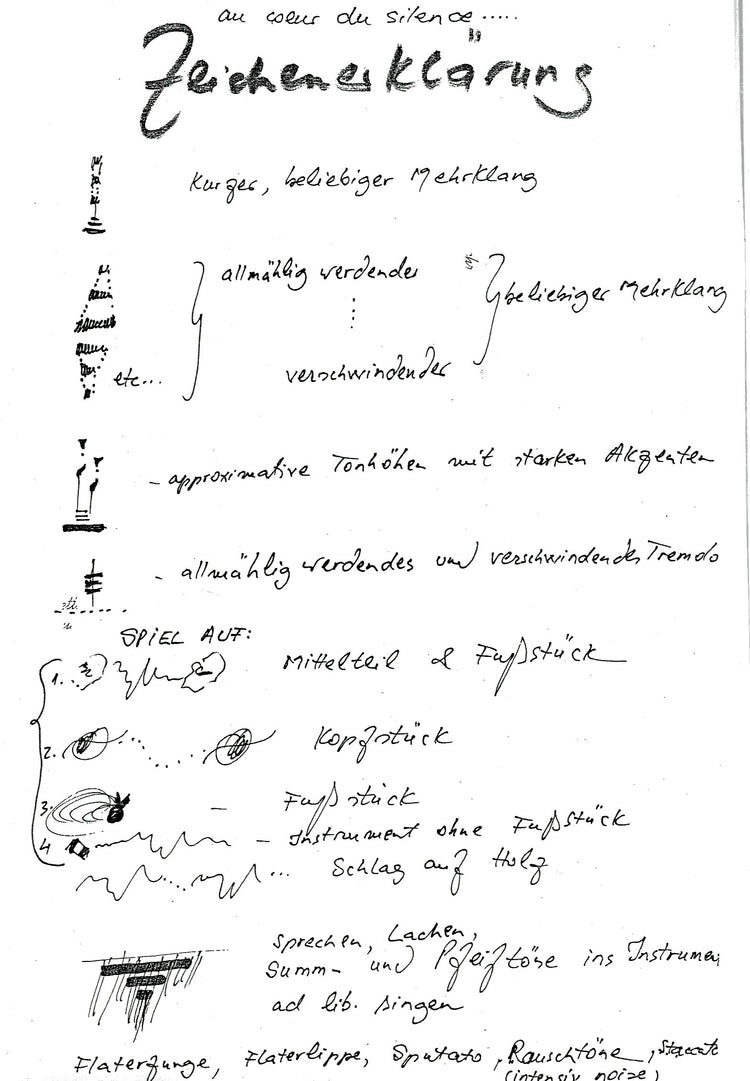 au coeur du silence.....
Zeichenerklärung
Kurzer, beliebiger Mehrklang
allmählig werdender
beliebiger Mehrklang
verschwindender
etc...
- approximative Tonhöhen mit starken Akzenten
- allmählig werdendes und verschwindendes Tremolo
SPIEL AUF:
1. Mittelteil & Fußstück
2. Kopfstück
3. - Fußstück
4 - Instrument ohne Fußstück
... Schlag auf Holz
Sprechen, Lachen,
Summ- und Pfeiftöne ins Instrumen
ad lib. singen
Flaterzunge, Flaterlippe, Sputato, Rauschtöne, Staccato
(intensiv noise)